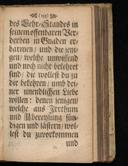 des Lehr-Standes in
seinem offenbaren Ver-
derben in Gnaden er-
barmen/ und die jeni-
gen/ welche unwissend
und noch nicht bekehret
sind/ die wollest du zu
dir bekehren/ und dei-
ner unendlichen Liebe
willen: denen jenigen/
welche aus Irrthum
und
und lästern/ wol-
lest du zuvorkommen
und